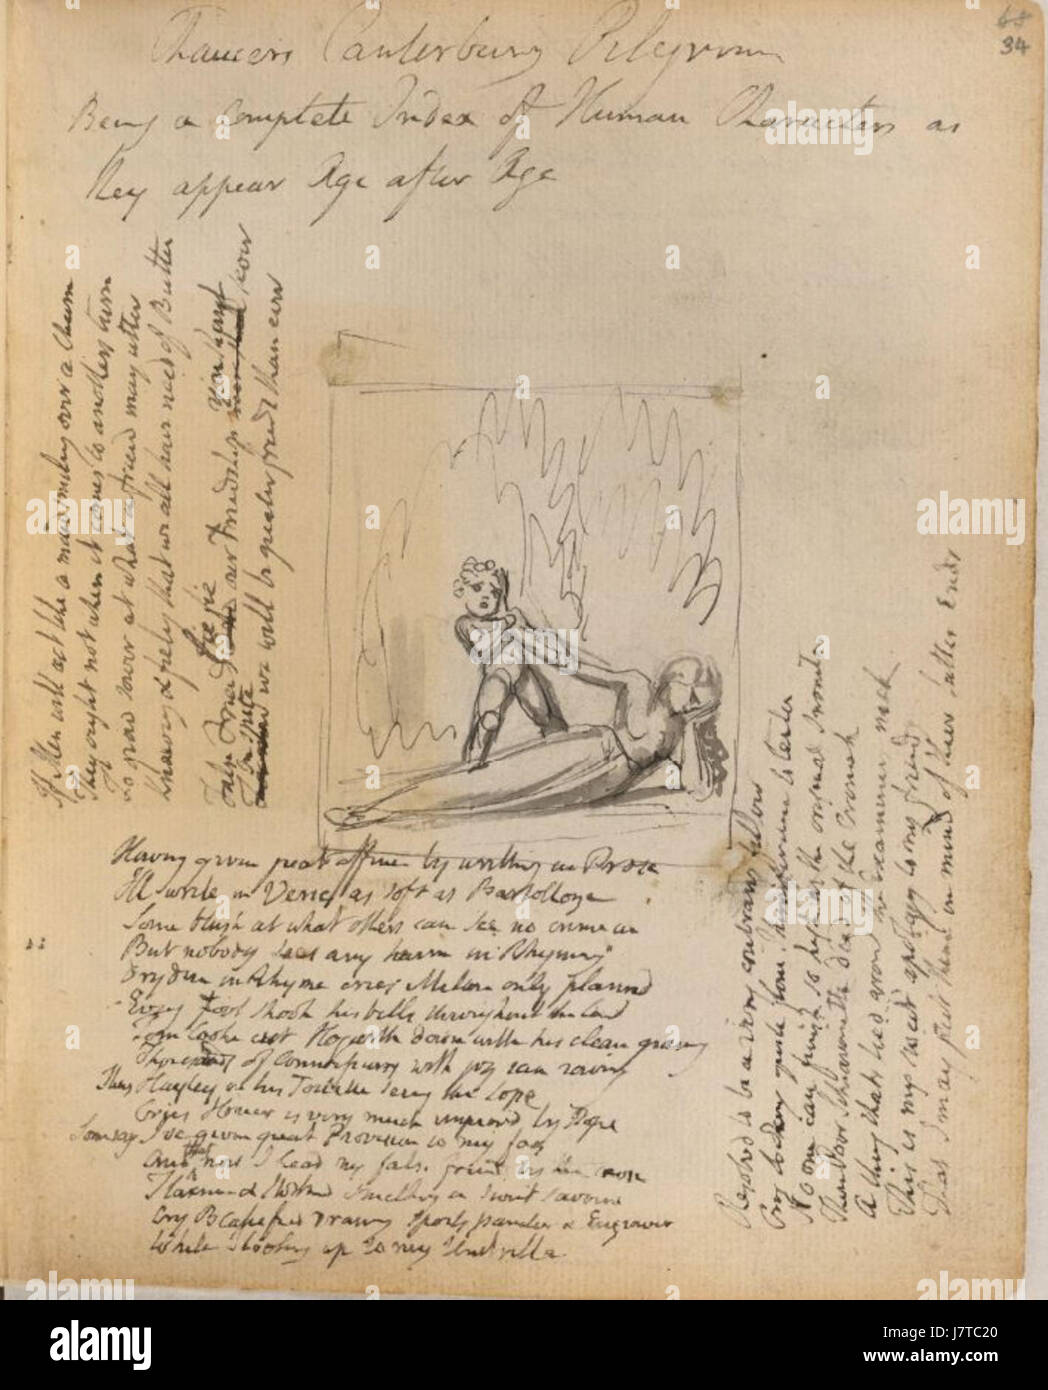 68
34
Chaucers Canterbury Pilgrims
Being a Complete Index of Human Characters as
they appear Age after Age
If Men will act like a maid smiling over a Churn
They ought not when it comes to anothers turn
To grow sower at what a friend may utter
Knowing & feeling that we all have need of Butter
False Friends fie fie our Friendship you shant sever
In spite we will be greater friends than ever
Having given great offence by writing in Prose
Ill write in Verse as soft as Bartolloze
Some blush at what others can see no crime in
But nobody sees any harm in Rhyming
Dryden in Rhyme cries Milton only plannd
Every Fool shook his bells throughout the land
Tom Cooke cut Hogarth down with his clean graving
Thousands of Connoisseurs with joy ran raving
Thus Hayley on his Toilette seeing the Sope
Cries Homer is very much improvd by Pope
Some say I've given great Provision to my foes
And that now I lead my false friends by the nose
Flaxman & Stothard smelling a sweet savour
Cry Blakefied drawing spoils painter & Engraver
While I looking up to my Umbrella
Resolvd to be a very contrary fellow
Cry looking quite from
No one can finish so high as the original Inventor
Thus Poor Schiavonetti died of the Cromek
A thing thats tied around the neck
This is my sweet apology to my friends
That I may put them in mind of their latter Ends
alamy
a
alamy stock photo
J7TC20
www.alamy.com